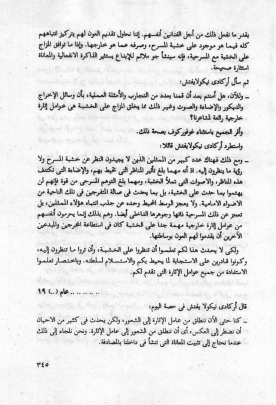 بقدر ما نفعل ذلك من أجل الفنانين أنفسهم. إننا نحاول تقديم العون لهم بتركيز انتباههم
كله فيما هو موجود على خشبة المسرح، وصرفه عما هو خارجها. وإذا ما توافق المزاج
على الخشبة مع المسرحية، فإنه سينشأ جو ملائم للإبداع يستثير الذاكرة الانفعالية والمعاناة
استثارة صحيحة.
ثم سأل أركادي نيكولايفتش:
- والآن، هل آمنتم بعد أن قمنا بعدد من التجارب والأمثلة العملية، بأن وسائل الإخراج
والديكور والإضاءة والصوت وغير ذلك مما يخلق المزاج على الخشبة هي عوامل إثارة
خارجية رائعة لمشاعرنا؟
وأقر الجميع باستثناء غوفوركوف بصحة ذلك.
واستطرد أركادي نيكولايفتش قائلا:
- ومع ذلك فهناك عدد كبير من الممثلين الذين لا يجيدون النظر عن خشبة المسرح ولا
رؤية ما ينظرون إليه. إذ أنه مهما بلغ تأثير المناظر التي تحيط بهم، والإضاءة التي تكتنف
هذه المناظر، والأصوات التي تملأ الخشبة، ومهما بلغ التوهم المسرحي من قوة فإنهم لن
يهتموا بما يحدث على الخشبة، بل بما يحدث في صالة المتفرجين في تلك الناحية من
الأضواء الأمامية. ولا يعجز الوسط المحيط وحده عن جذب انتباه هؤلاء الممثلين، بل
تعجز عن ذلك المسرحية ذاتها وجوهرها الداخلي أيضا. وهم بذلك إنما يحرمون أنفسهم
من عوامل إثارة خارجية مهمة جدا على الخشبة كان في استطاعة المخرجين والمبدعين
الآخرين أن يقدموا لهم العون بوساطتها.
ولكي لا يحدث هذا لكم تعلموا أن تنظروا على الخشبة، وأن تروا ما تنظرون إليه،
وكونوا قادرين على الاستجابة لما يحيط بكم والاستسلام لسلطته. وباختصار تعلموا
الاستفادة من جميع عوامل الإثارة التي تقدم لكم.
............ عام (..) ١٩
قال أركادي نيكولايفتش في حصة اليوم:
- كنا حتى الآن ننطلق من عامل الإثارة إلى الشعور، ولكن يحدث في كثير من الأحيان
أن نضطر إلى العكس، أي أن ننطلق من الشعور إلى عامل الإثارة. ونحن نلجأ إلى ذلك
عندما نحتاج إلى تثبيت المعاناة التي تنشأ في داخلنا بالمصادفة.
٣٤٥